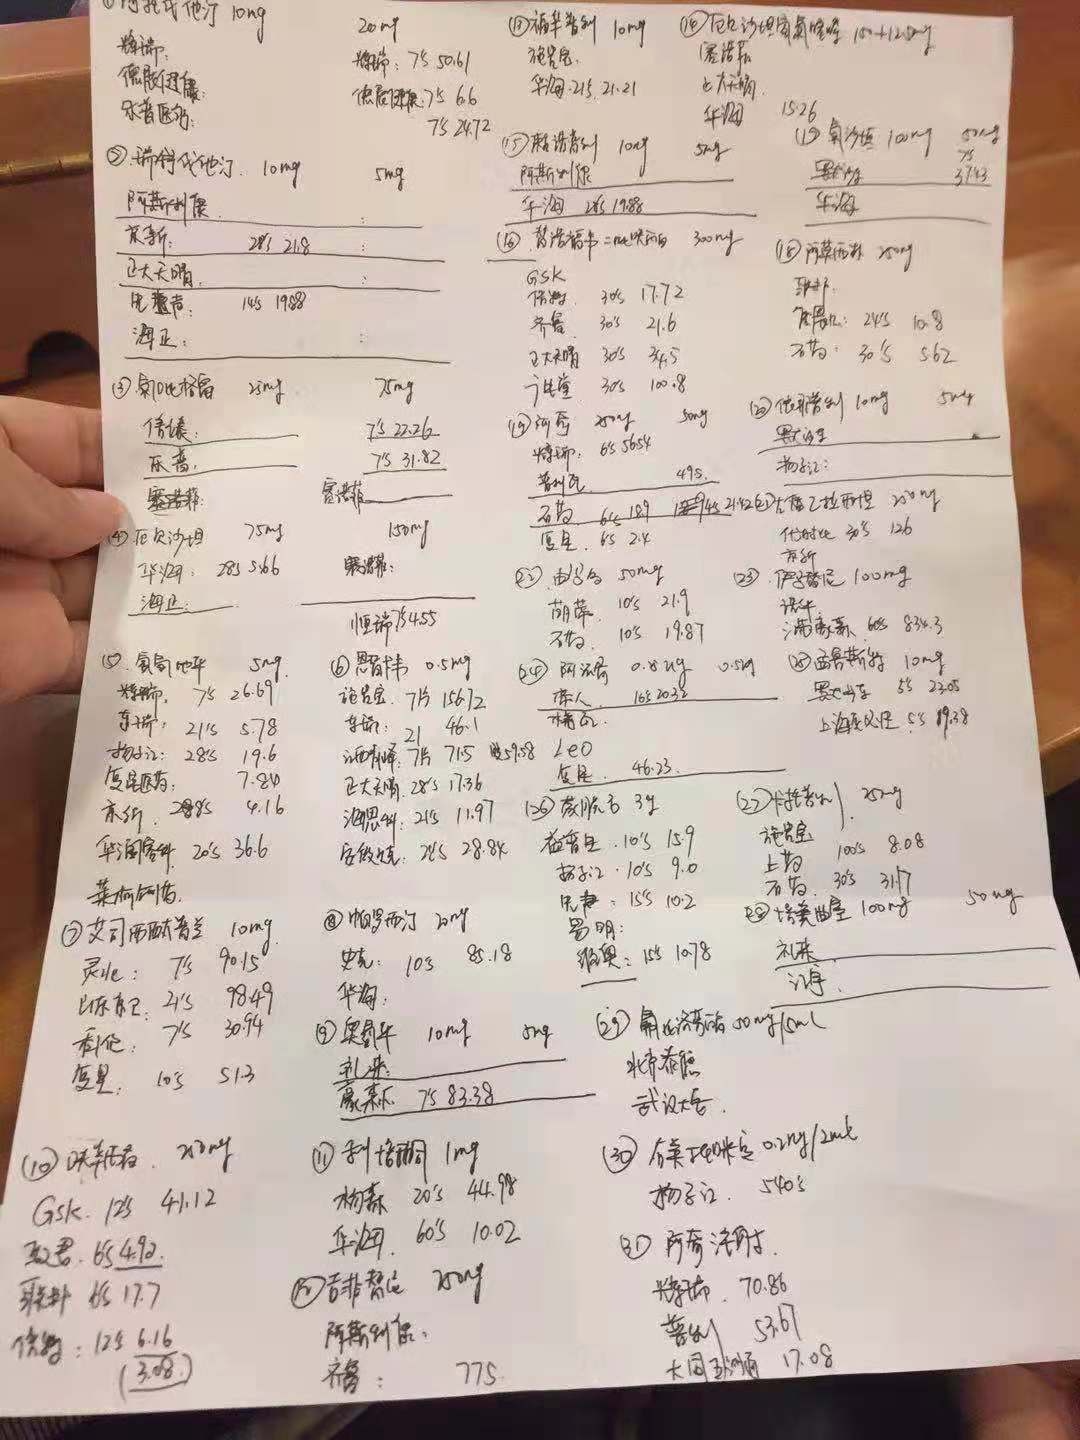 ①阿托伐他汀 10mg 20mg
辉瑞: 辉瑞: 7's 50.61
德展健康: 德展健康: 7's 6.6
乐普医药: 7's 24.72
②瑞舒伐他汀 10mg 5mg
阿斯利康
京新: 28's 21.8
正大天晴:
先声: 14's 19.88
海正:
③氯吡格雷 25mg 75mg
信立泰: 7's 22.26
乐普: 7's 31.82
赛诺菲: 赛诺菲
④厄贝沙坦 75mg 150mg
华海: 28's 5.66 赛诺菲:
海正:
恒瑞 7's 4.55
⑤氨氯地平 5mg
辉瑞: 7's 26.69
东瑞: 21's 5.78
扬子江: 28's 19.6
复星医药: 7.84
京新: 28's 4.16
华润赛科 20's 36.6
⑥恩替卡韦 0.5mg
施贵宝: 7片 156.72
东瑞: 21 46.1
江西青峰: 7片 71.5
正大天晴: 28's 17.36
海思科: 21's 11.97
28.84
⑦艾司西酞普兰 10mg
灵北: 7's 90.15
山东京卫: 21's 98.49
科伦: 7's 30.94
复星: 10's 51.3
⑧帕罗西汀 20mg
史克: 10's 85.18
华海:
⑨奥氮平 10mg 5mg
礼来:
豪森 7's 83.38
⑩头孢呋辛 250mg
GSK 12's 41.12
致君 6's 4.92
联邦 6's 17.7
倍特: 12's 6.16
(3.08)
⑪利培酮 1mg
杨森 20's 44.98
华海 60's 10.02
⑫吉非替尼 250mg
阿斯利康:
齐鲁: 775
⑬福辛普利 10mg
施贵宝
华海 21's 21.21
⑭厄贝沙坦氢氯噻嗪 150+12.5mg
赛诺菲
正大天晴
华海 15.26
⑮赖诺普利 10mg 5mg
阿斯利康
华海 28's 19.88
⑯替诺福韦二吡呋酯 300mg
GSK
倍特 30's 17.72
齐鲁 30's 21.6
正大天晴 30's 34.5
30's 100.8
⑰氯沙坦 100mg 50mg
默沙东 7's 37.43
华海
⑱阿莫西林 250mg
联邦
24's 10.8
石药: 30's 5.62
⑲阿奇 250mg 50mg
辉瑞: 6's 56.54
普利 495
石药 6's 18.9
复星 6's 2.4
⑳依那普利 10mg 5mg
默沙东
扬子江:
250mg
30's 126
京新
50mg
10's 21.9
石药 10's 19.87
㉓伊马替尼 100mg
诺华
江苏豪森 60's 834.3
㉔阿法骨化醇 0.25ug 0.5ug
帝人 10's 20.32
Leo
复星 46.23
㉕孟鲁司特 10mg
默沙东 5's 23.05
上海安必生 5's 19.38
㉖蒙脱石 3g
益普生 10's 15.9
扬子江 10's 9.0
先声: 15's 10.2
维奥: 15's 10.78
㉗卡托普利 25mg
施贵宝
上药 100's 8.08
石药 30's 31.7
㉘培美曲塞 100mg 50mg
礼来
汇宇
㉙氟比洛芬酯 50mg/5ml
北京泰德
武汉大安
㉚右美托咪定 0.2mg/2ml
扬子江 540's
㉛阿奇注射
辉瑞 70.86
普利 53.67
大同五洲通 17.08